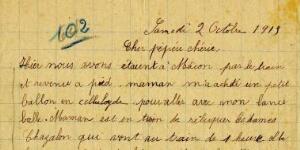 102
Samedi 2 Octobre 1915
Cher pépée chérie.
Hier nous avons étaient à Mâcon par le train
et revenue a pied. maman m'a acheté un petit
ballon en celluloyde pour aller avec mon lance
balle. Maman est en train de
Chazalon qui vont au train de 1 heure